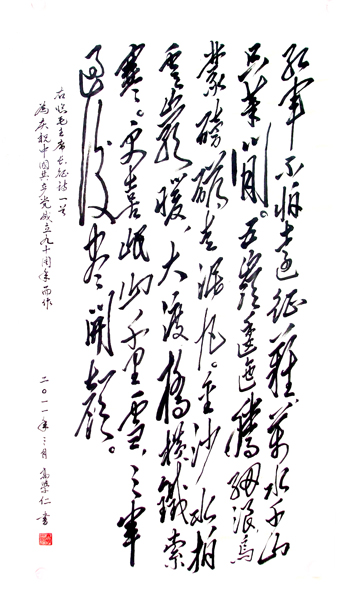 红军不怕远征难。万水千山
只等閒。五岭逶迤腾细浪。乌
蒙磅礴走泥丸。金沙水拍
云崖暖。大渡桥横铁索
寒。更喜岷山千里雪。三军
过后尽开颜。
右临毛主席长征诗一首
为庆祝中国共产党成立九十周年而作
二〇一一年三月 高荣仁书